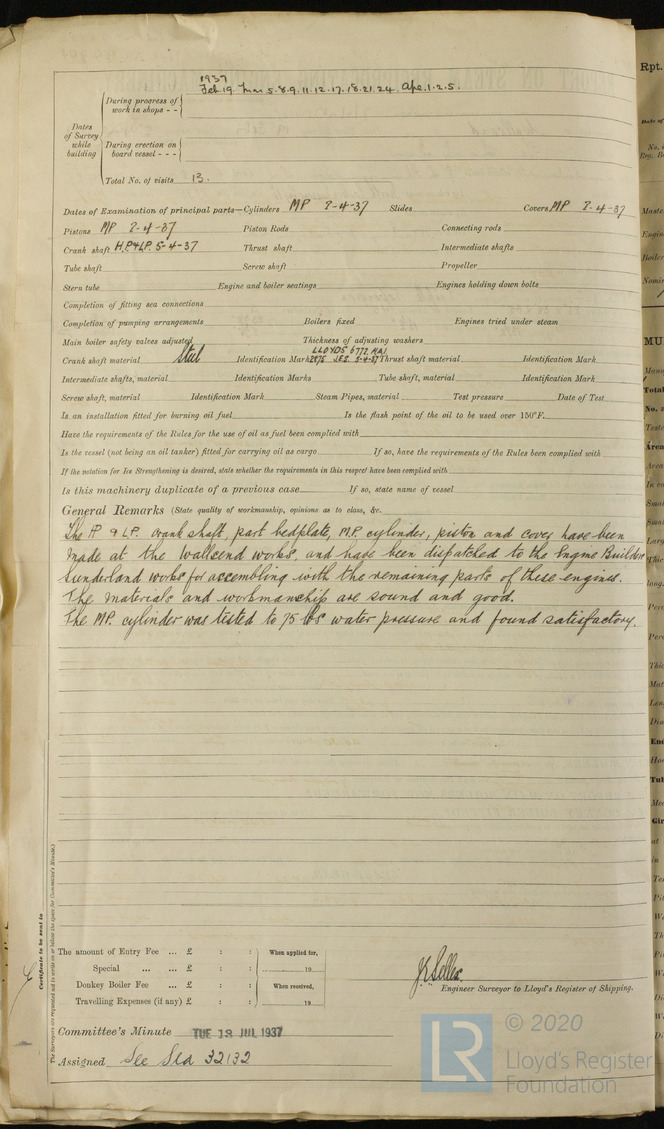 1937
Feb 19. Mar 5. 8. 9. 11. 12. 17. 18. 21. 24. Apr. 1. 2. 5.
Dates of Survey while building
During progress of work in shops - -
During erection on board vessel - - -
Total No. of visits 13.
Dates of Examination of principal parts—Cylinders MP 2-4-37 Slides Covers MP 2-4-37
Pistons MP 2-4-37 Piston Rods Connecting rods
Crank shaft H.P.&LP. 5-4-37 Thrust shaft Intermediate shafts
Tube shaft Screw shaft Propeller
Stern tube Engine and boiler seatings Engines holding down bolts
Completion of fitting sea connections
Completion of pumping arrangements Boilers fixed Engines tried under steam
Main boiler safety valves adjusted Thickness of adjusting washers
LLOYDS 6772
Crank shaft material Steel Identification Mark Thrust shaft material Identification Mark
Intermediate shafts, material Identification Marks Tube shaft, material Identification Mark
Screw shaft, material Identification Mark Steam Pipes, material Test pressure Date of Test
Is an installation fitted for burning oil fuel Is the flash point of the oil to be used over 150°F.
Have the requirements of the Rules for the use of oil as fuel been complied with
Is the vessel (not being an oil tanker) fitted for carrying oil as cargo If so, have the requirements of the Rules been complied with
If the notation for Ice Strengthening is desired, state whether the requirements in this respect have been complied with
Is this machinery duplicate of a previous case If so, state name of vessel
General Remarks (State quality of workmanship, opinions as to class, &c.
The & LP. crank shaft, part bedplate, M.P. cylinder, piston and cover have been
made at the Wallsend works and have been dispatched to the Engine Builders
Sunderland works for assembling with the remaining parts of these engines.
The materials and workmanship are sound and good.
The MP. cylinder was tested to 75 lbs water pressure and found satisfactory.
Certificate to be sent to
The Surveyors are requested not to write on or below the space for Committee's Minute.
The amount of Entry Fee ... £ : : When applied for,
Special ... ... £ : : 19
Donkey Boiler Fee ... £ : : When received,
Travelling Expenses (if any) £ : : 19
Engineer Surveyor to Lloyd's Register of Shipping.
Committee's Minute TUE 13 JUL 1937
Assigned See Sld 32132
LR © 2020
Lloyd's Register
Foundation
Rpt.